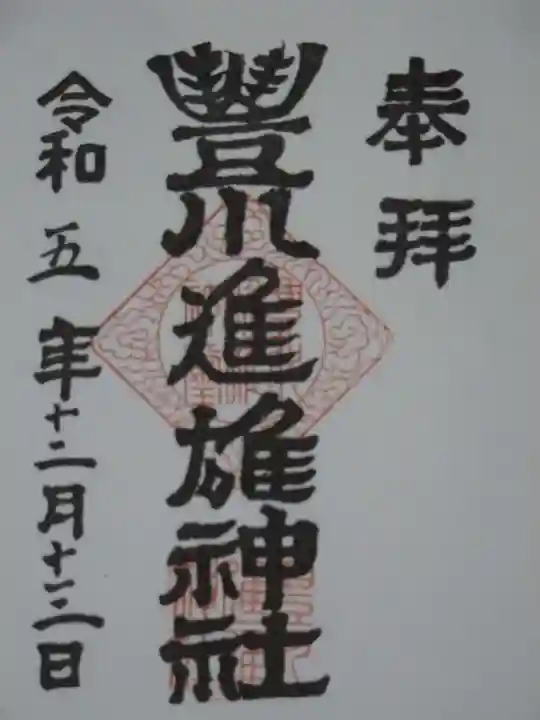 奉拝
豐川進雄神社
令和五年十二月十二日